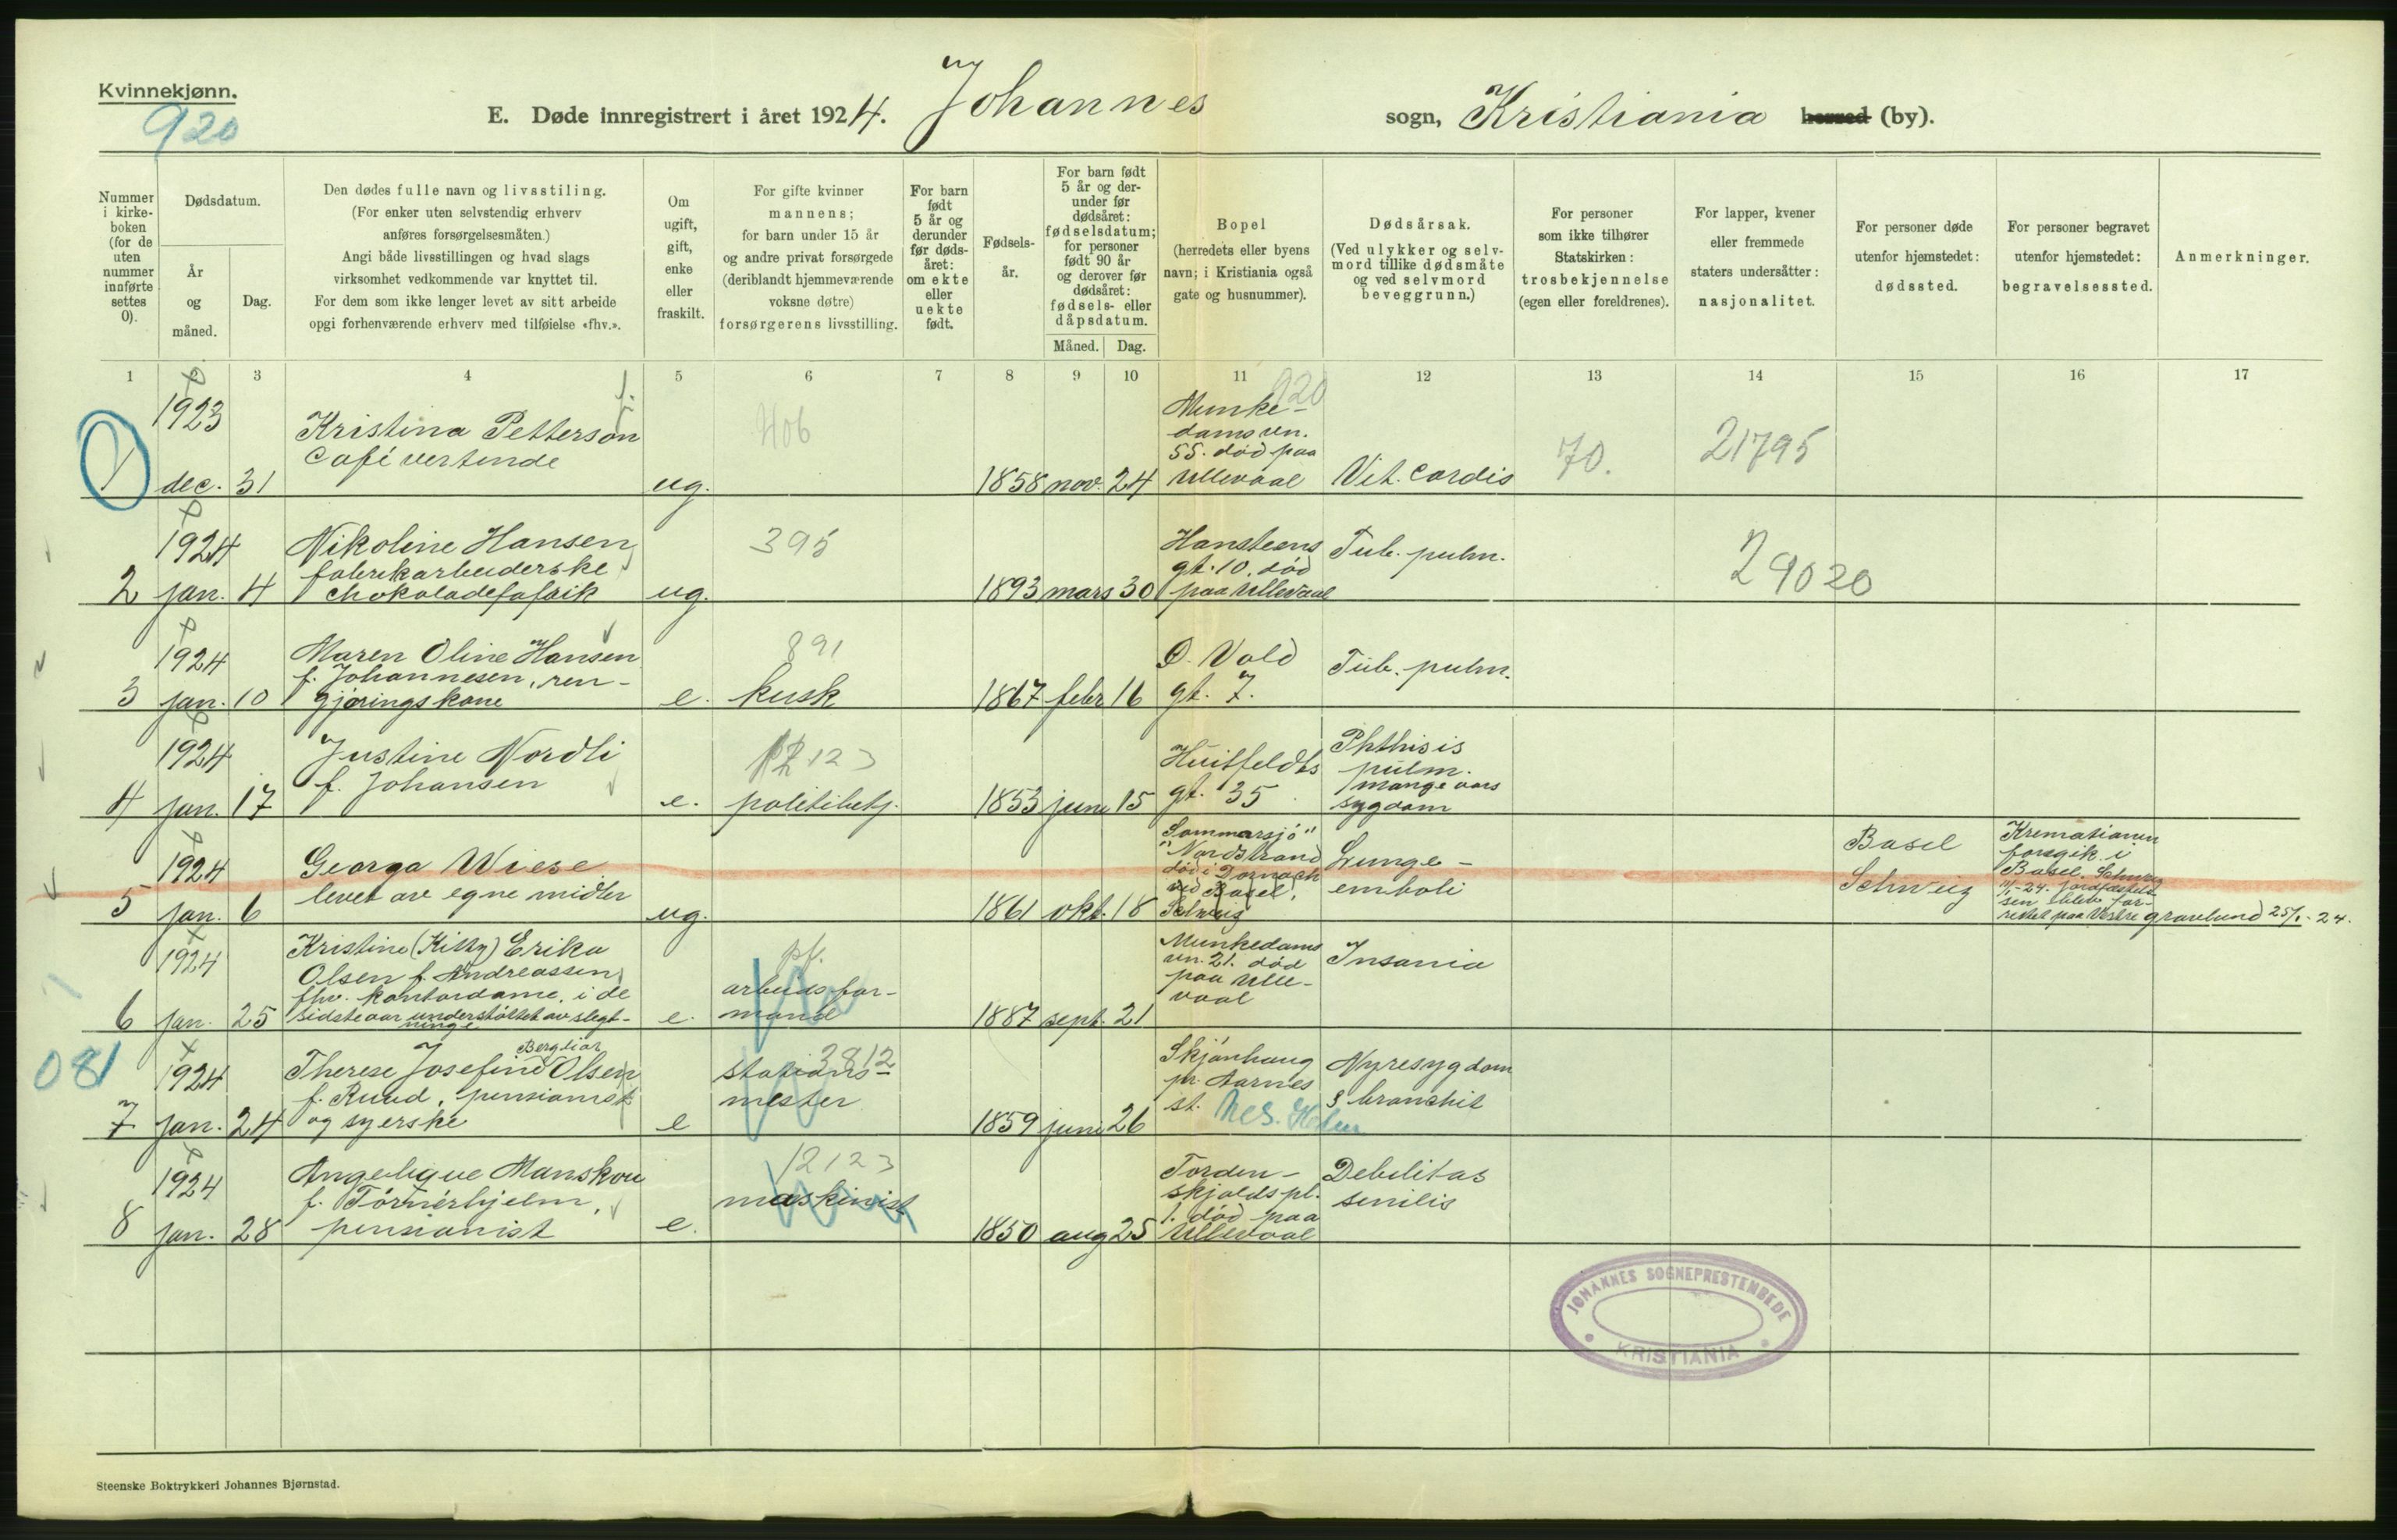 Kvinnekjønn.
920
E. Døde innregistrert i året 1924. Johannes sogn, Kristiania herred (by).
Nummer i kirkeboken (for de uten nummer innførte settes 0).
Dødsdatum.
År og måned.
Dag.
Den dødes fulle navn og livsstiling.
(For enker uten selvstendig erhverv
anføres forsørgelsesmåten.)
Angi både livsstillingen og hvad slags
virksomhet vedkommende var knyttet til.
For dem som ikke lenger levet av sitt arbeide
opgi forhenværende erhverv med tilføielse «fhv.».
Om ugift, gift, enke eller fraskilt.
For gifte kvinner
mannens;
for barn under 15 år
og andre privat forsørgede
(deriblandt hjemmeværende
voksne døtre)
forsørgerens livsstilling.
For barn født 5 år og derunder før dødsåret: om ekte eller uekte født.
Fødselsår.
For barn født 5 år og derunder før dødsåret: fødselsdatum; for personer født 90 år og derover før dødsåret: fødsels- eller dåpsdatum.
Måned. Dag.
Bopel
(herredets eller byens
navn; i Kristiania også
gate og husnummer).
Dødsårsak.
(Ved ulykker og selv-
mord tillike dødsmåte
og ved selvmord
beveggrunn.)
For personer
som ikke tilhører
Statskirken:
trosbekjennelse
(egen eller foreldrenes).
For lapper, kvener
eller fremmede
staters undersåtter:
nasjonalitet.
For personer døde
utenfor hjemstedet:
dødssted.
For personer begravet
utenfor hjemstedet:
begravelsessted.
Anmerkninger.
1 2 3 4 5 6 7 8 9 10 11 12 13 14 15 16 17
1 1923 dec. 31
Kristina Petterson
Café vertinde
ug.
406
1858 nov. 24
920
Munke-
damsvn.
55. død paa
Ullevaal
Vit. cordis
70.
21795
2 1924 jan. 4
Nikoline Hansen
fabrikarbeiderske
chokoladefabrik
ug.
395
1893 mars 30
Hansteens
gt. 10. død
paa Ullevaal
Tub. pulm.
29020
3 1924 jan. 10
Maren Oline Hansen
f. Johannesen, ren-
gjøringskone
e.
891
kusk
1867 febr 16
O. Vold
gt. 7.
Tub. pulm.
4 1924 jan. 17
Justine Nordli
f. Johansen
e.
12123
politibetj.
1853 juni 15
Huitfeldts
gt. 35
Phthisis
pulm.
mange aars
sygdom
5 1924 jan. 6
Georga Wiese
levet av egne midler
ug.
1861 okt. 18
Sommersjö"
"Nordstrand
død i Dornach
ved Basel,
Schweiz
Lunge-
emboli
Basel
Schweiz
Kremationen
foregik i
Basel. Schweiz
11/1-24. Jordfæstel-
sen blev for-
rettet paa Vestre gravlund 25/1-24.
6 1924 jan. 25
Kristine (Kitty) Erika
Olsen f. Andreassen
fhv. kontordame, i de
sidste aar understöttet av slegt-
ninge
e.
pf.
arbeidsfor-
mand
1887 sept. 21
Munkedams
vn. 21. død
paa Ulle-
vaal
Insania
081
7 1924 jan. 24
Bergliot
Therese Josefine Olsen
f. Ruud, pensionist
og syerske
e
3812
stations-
mester
1859 juni 26
Skjönhaug
pr. Aarnes
st. Nes. Hdm
Nyresygdom
& bronchit
8 1924 jan. 28
Angelique Manskou
f. Törnerhjelm,
pensionist
e.
12123
maskinist
1850 aug 25
Torden-
skjolds pl.
1. død paa
Ullevaal
Debilitas
senilis
JOHANNES SOGNEPRESTEMBEDE
KRISTIANIA
Steenske Boktrykkeri Johannes Bjørnstad.